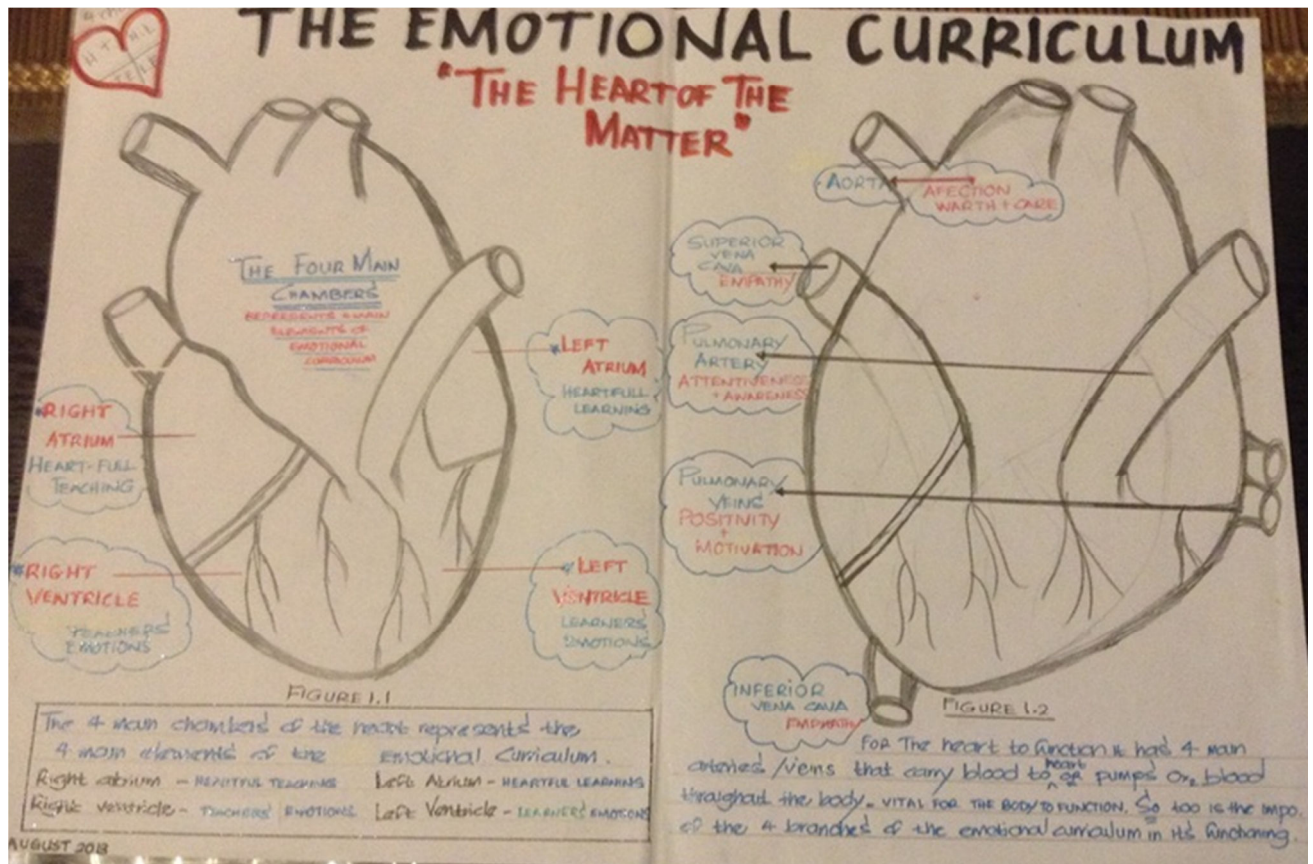 THE EMOTIONAL CURRICULUM
"THE HEART OF THE
MATTER"
H.T
H.L
T.E
L.E
THE FOUR MAIN
CHAMBERS
REPRESENTS 4 MAIN
ELEMENTS OF
EMOTIONAL
CURRICULUM
LEFT
ATRIUM
HEARTFULL
LEARNING
RIGHT
ATRIUM
HEART-FULL
TEACHING
RIGHT
VENTRICLE
TEACHERS'
EMOTIONS
LEFT
VENTRICLE
LEARNERS
EMOTIONS
FIGURE 1.1
The 4 main chambers of the heart represents the
4 main elements of the Emotional Curriculum.
Right atrium - HEARTFUL TEACHING Left Atrium - HEARTFUL LEARNING
Right ventricle - TEACHERS' EMOTIONS Left Ventricle - LEARNERS' EMOTIONS
AUGUST 2013
AORTA
AFECTION
WARTH + CARE
SUPERIOR
VENA
CAVA
EMPATHY
PULMONARY
ARTERY
ATTENTIVENESS
+ AWARENESS
PULMONARY
VEINS
POSITIVITY
+
MOTIVATION
INFERIOR
VENA CAVA
EMPHATHY
FIGURE 1.2
FOR The heart to function it had 4 main
arteries/veins that carry blood to heart or pumps Or2 blood
throughout the body. VITAL FOR THE BODY TO FUNCTION. So too is the impo.
of the 4 branches of the emotional curriculum in its functioning.